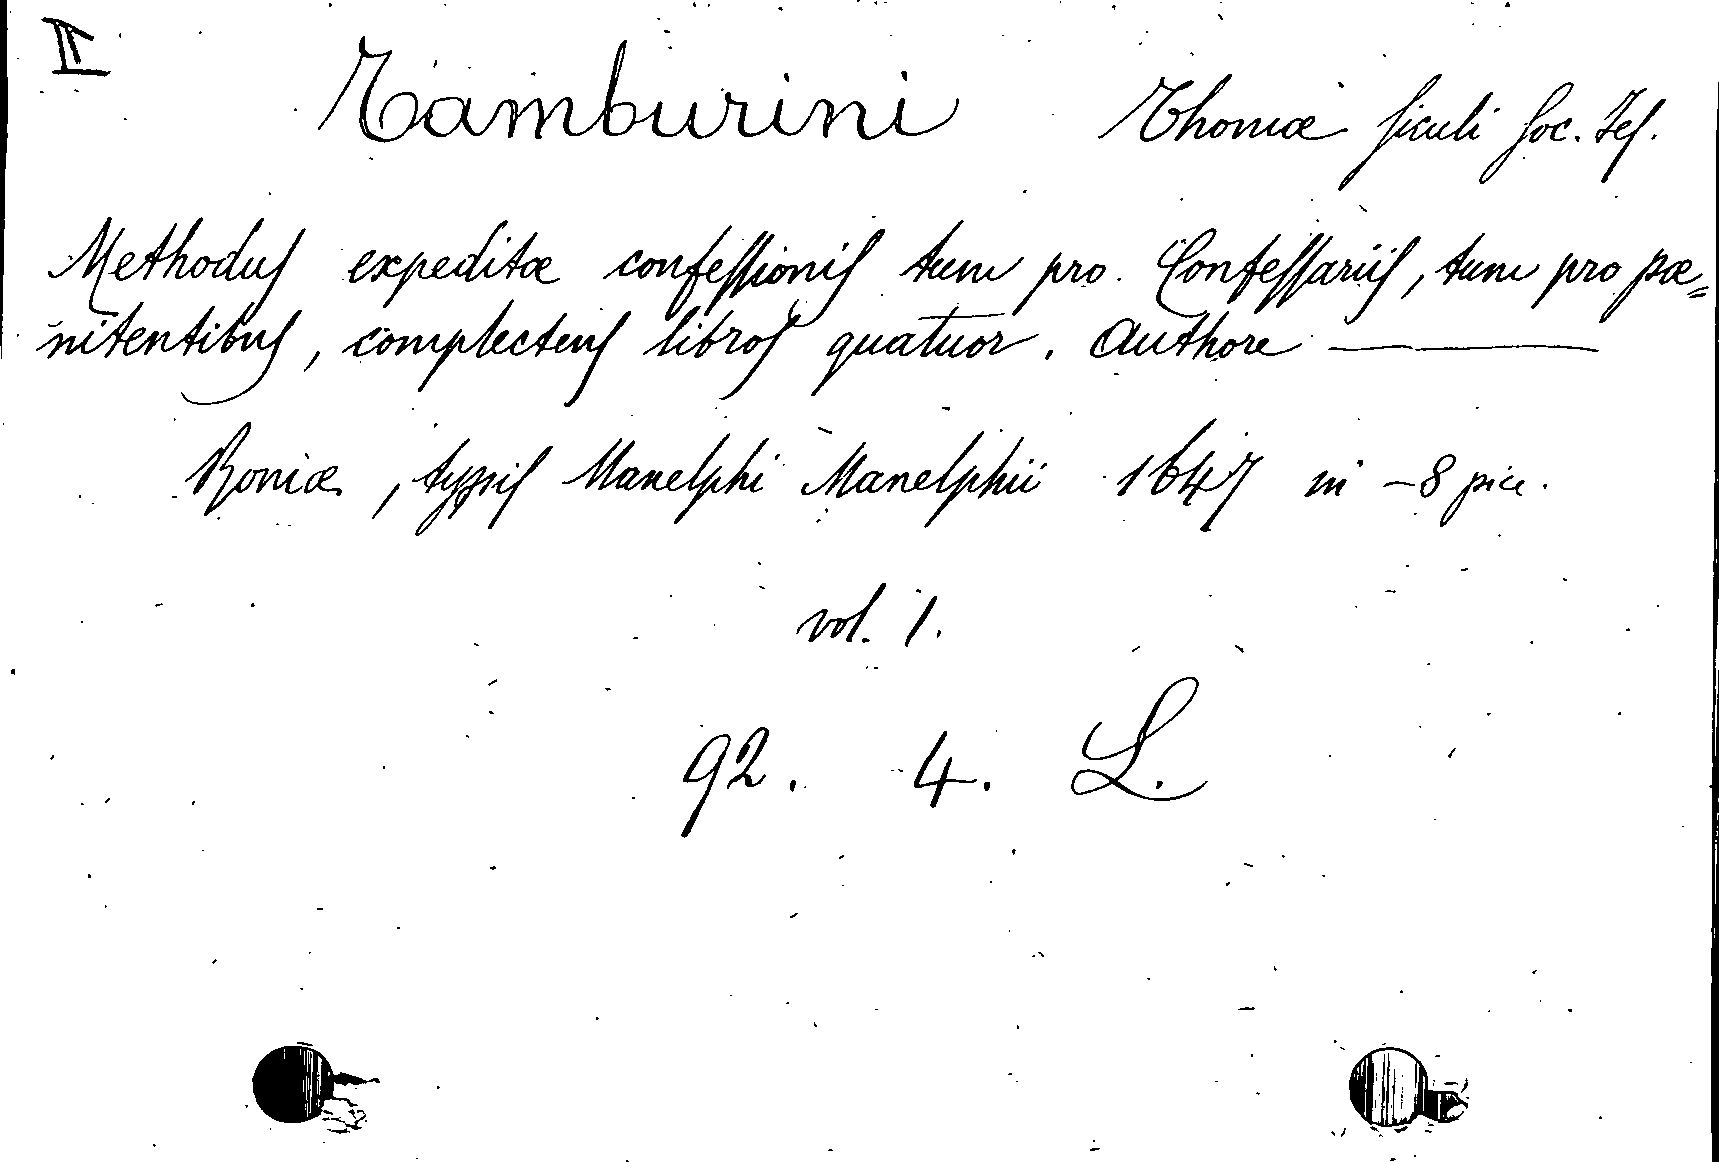 II
Tamburini Thomæ siculi Soc. Jes.
Methodus expeditæ confessionis tum pro Confessariis, tum pro pæ=
nitentibus, complectens libros quatuor. Authore ———
Romæ, typis Manelphi Manelphii 1647 in -8 picc.
vol. 1.
92. 4. L.